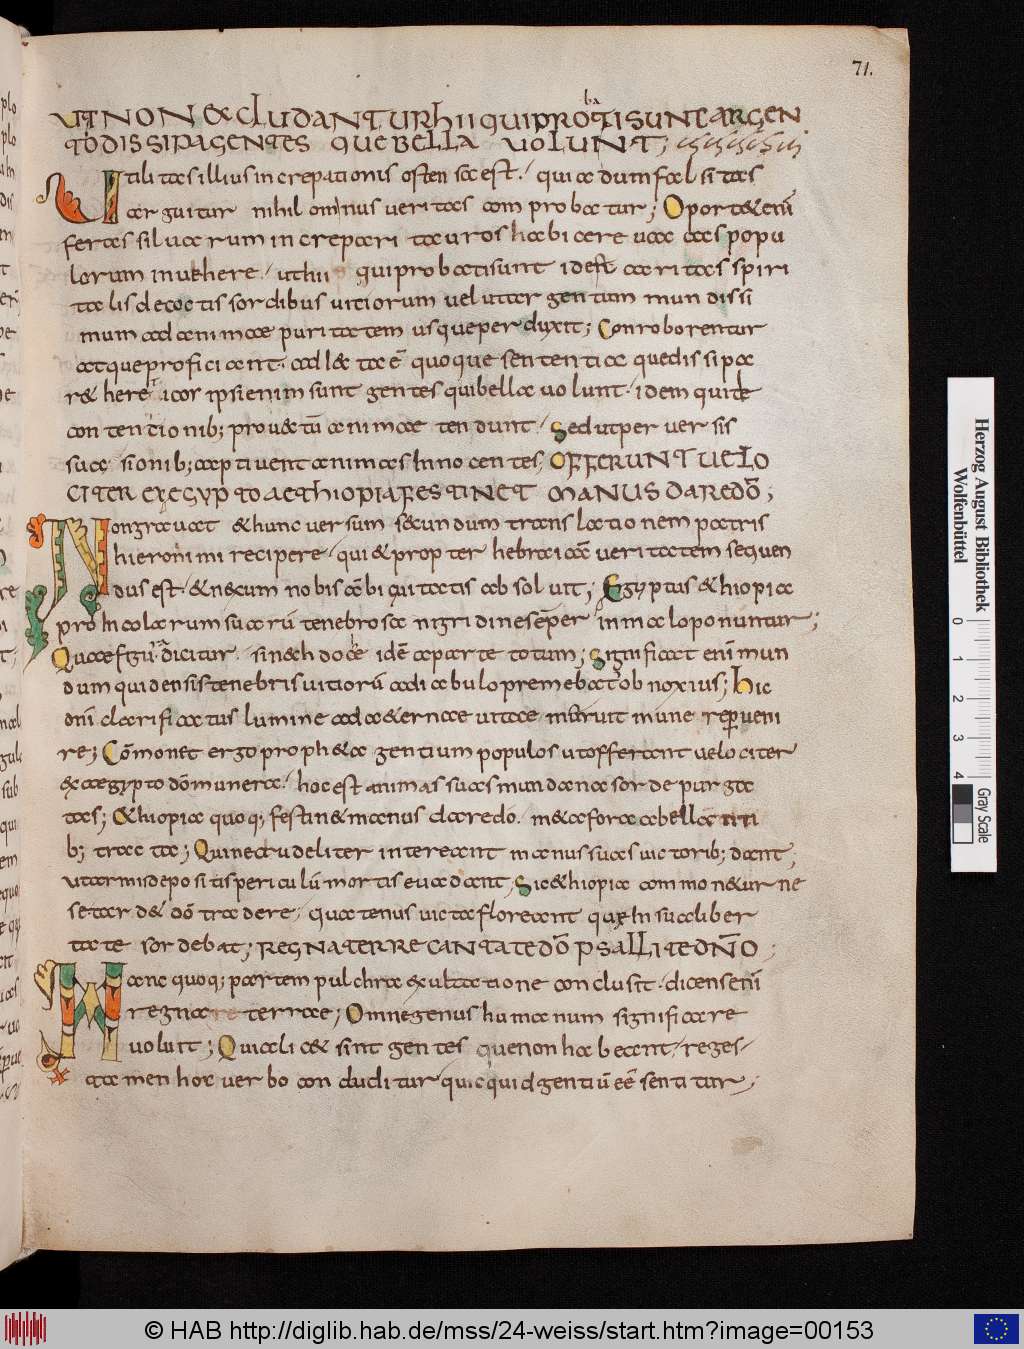 71.
UT NON EXCLUDANTUR hII QUI PROBATI SUNT ARGEN
TO DISSIPA GENTES QUE BELLA VOLUNT;
Utilitas illius increpationis ostensa est. quia dum falsitas
arguitur nihilominus veritas comprobatur; Oportet enī
feras silvarum increpari tauros habi aere vac cas popu
lorum invehere. ut hii qui probati sunt id est caritas spiri
talis decoctis sordibus vitiorum velut argentum mundissi
mum ad animae puritatem usque perduxit; Conroborentur
atque proficiant. ad laetāē quoque sententia que dissipa
ret heretiacos ipsi enim sunt gentes qui bella volunt. idem quite
contentionib; provetū animae tendunt. Sed ut perversis
suasionib; captivent animas Innocentes; OFFERUNT VELO
CITER EX EGYPTO AETHIOPIA FESTINET MANUS DARE DŌ;
Non gravat & hunc versum secundum translationem patris
hieronimi recipere. qui & propter hebraicā veritatem sequen
dus est. & n&cum nobis ābiguitatis absolvit; Egyptus &hiopia
pro Incolarum suarū tenebrosa nigridine sēper in malo ponuntur;
Quae figura dicitur. sinecdoce idē a parte totum; Significat enī mun
dum qui densis tenebris vitiorū adiabulo premebat ob noxius; hic
onī clarificatus lumine adaeternae vitae meruit munere perveni
re; Cōmonet ergo proph&a gentium populos ut offerant velociter
ex aegypto dō munera. hoc est animas suas mundanas sorde purga
tas; &hiopia quoq; festin& manus dare do. metafora a bellan tri
b; tracta; Qui ne crudeliter intereant manus suas victorib; dant,
ut armis depositis periculū mortis evadant; Sic &hiopia commonetur ne
se tard& dō tradere. quatenus victa floreant quae In sua liber
tate sordebat; REGNA TERRE CANTATE DŌ PSALLITE DÑO;
Hanc quoq; partem pulchra exultatione conclusit. dicens enī
regna terrae; Omne genus humanum significare
voluit; Qui alicae sint gentes que non habeant. reges.
tamen hoc verbo concluditur quicquid gentiū eē sentitur;
Herzog August Bibliothek
Wolfenbüttel
0 1 2 3 4
Gray Scale
© HAB http://diglib.hab.de/mss/24-weiss/start.htm?image=00153